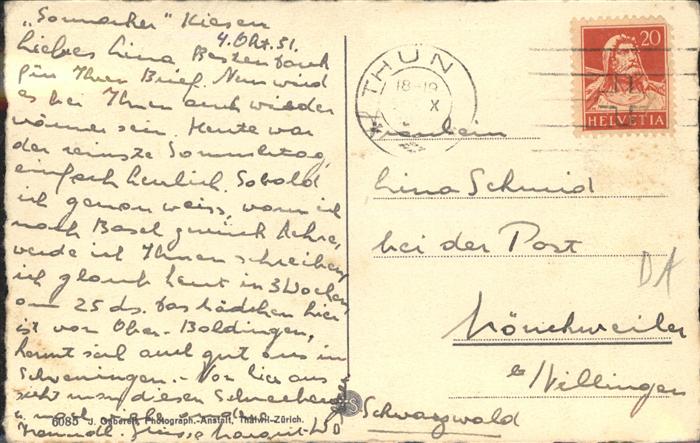 „Sonnacker" Kiesen
4. Okt. 31.
Liebes Lina Besten Dank
für Ihren Brief. Nun wird
es bei Ihnen auch wieder
wärmer sein. Heute war
der reinste Sommertag,
einfach herrlich. Sobald
ich genau weiss, wann ich
nach Basel zurück kehre,
werde ich Ihnen schreiben,
ich glaub heut in 3 Wochen,
am 25 ds. Das Mädchen hier
ist von Ober-Baldingen,
kennt sich auch gut aus in
Schweningen. - Von hier aus
sieht man diesen
Grüsse
6085 J. Gaberell, Photograph.-Anstalt, Thalwil-Zürich.
THUN
18-19
X
20
HELVETIA
Fräulein
Lina Schmid
bei der Post
Mönchweiler
b/ Villingen
Schwarzwald
DA